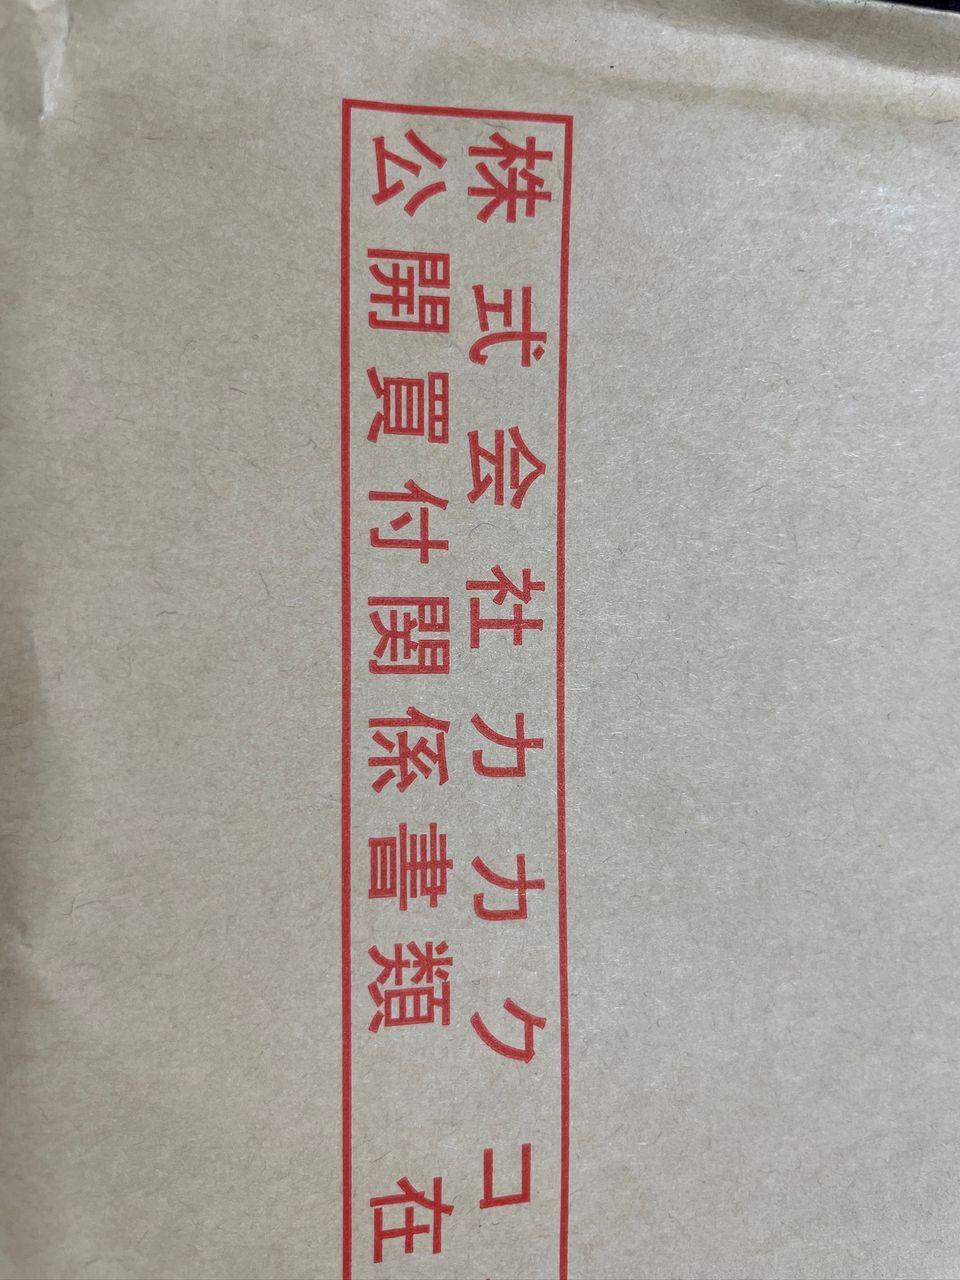 株式会社カカクコ
公開買付関係書類在